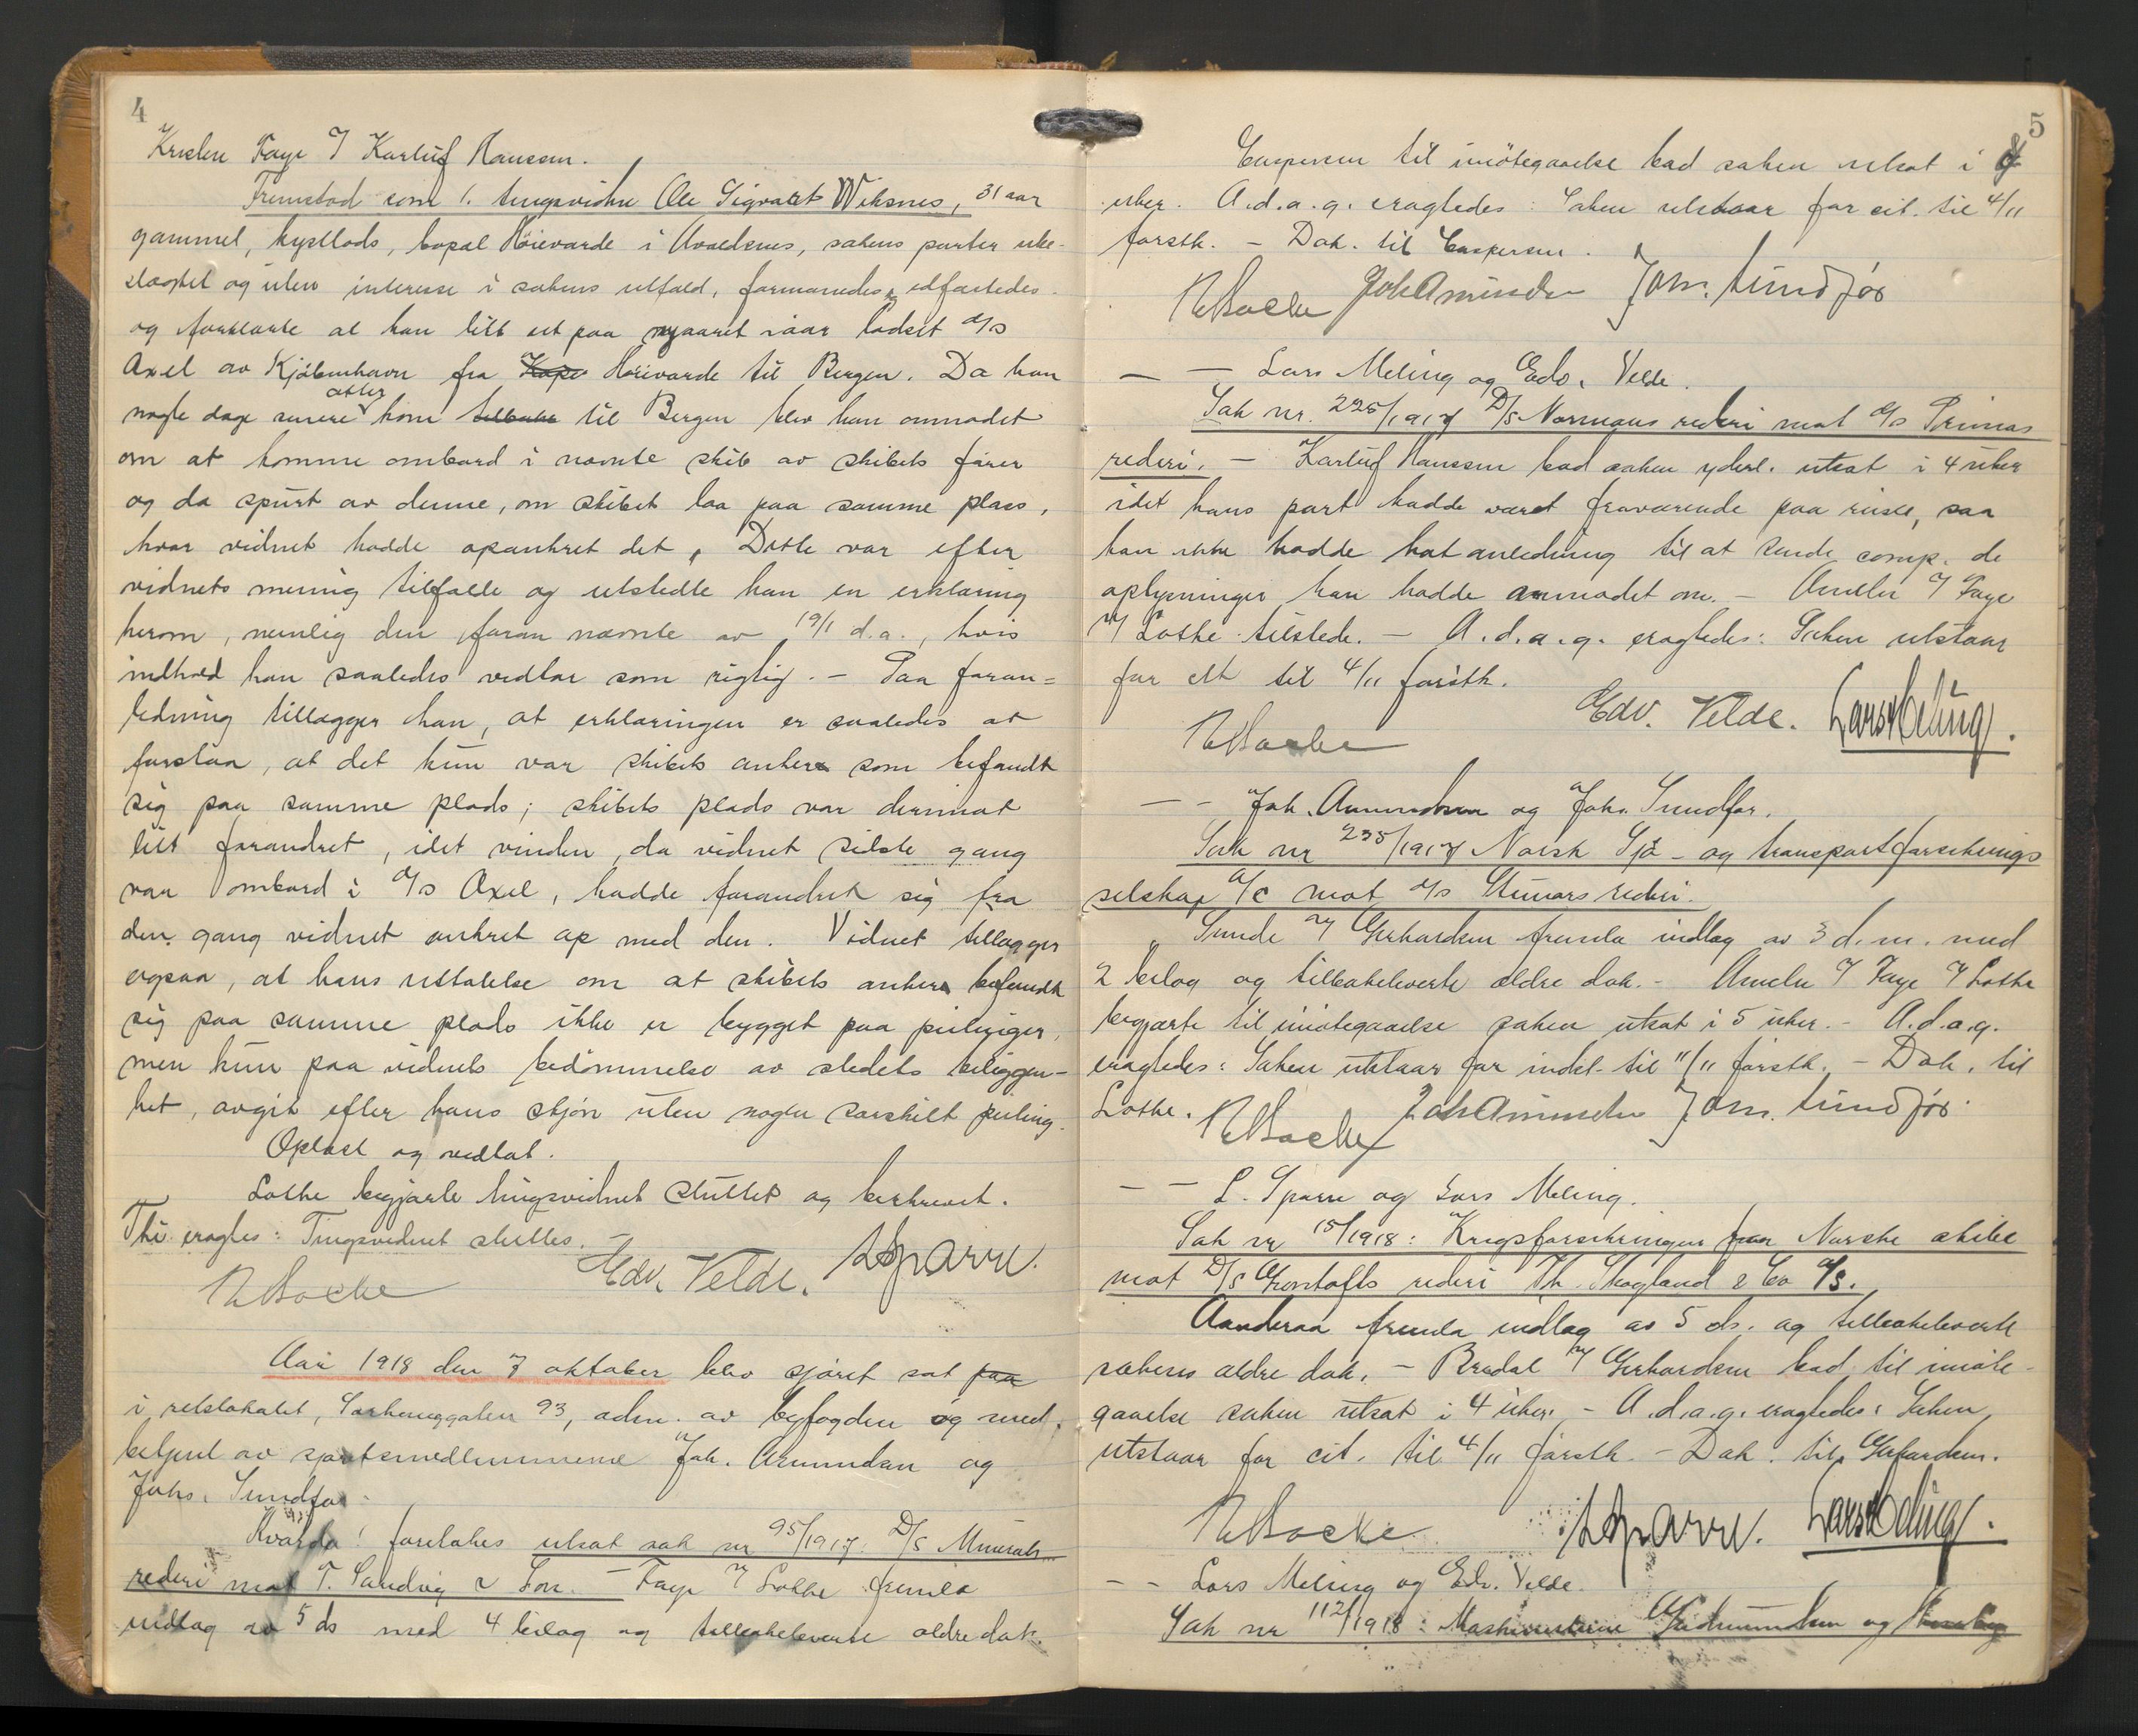 4
Kristen Faye f Karluf Hanssen.
Fremstod som 1. tingsvidne Ole Sigvart Wiksnes, 31 aar
gammel, kystlods, bopæl Höievarde i Avaldsnes, sakens parter ube-
slægtet og uten interesse i sakens utfald, formanedes, edfæstedes
og forklarte at han litt ut paa nyaaret iaar lodset D/S
Axel av Kjöbenhavn fra Höievarde til Bergen. Da han
nogle dage senere atter kom til Bergen blev han anmodet
om at komme ombord i nævnte skib av skibets förer
og da spurt av denne, om skibet laa paa samme plass,
hvor vidnet hadde opankret det. Dette var efter
vidnets mening tilfælle og utstedte han en erklæring
herom, nemlig den foran nævnte av 19/1 d.a., hvis
indhold han saaledes vedtar som rigtig. - Paa foran=
ledning tillægger han, at erklæringen er saaledes at
forstaa, at det kun var skibets anker som befandt
sig paa samme plads; skibets plads var derimot
litt forandret, idet vinden, da vidnet sidste gang
var ombord i D/S Axel, hadde forandret sig fra
den gang vidnet ankret op med den. Vidnet tillægger
ogsaa, at hans uttalelse om at skibets anker befandt
sig paa samme plads ikke er bygget paa peilinger,
men kun paa vidnets bedömmelse av stedets beliggen-
het, avgit efter hans skjön uten nogen særskilt peiling.
Oplæst og vedtat.
Lothe begjærte tingsvidnet sluttet og beskrevet.
Thi eragtes: Tingsvidnet sluttes. -
Edv. Velde. LSparre.
Aar 1918 den 7 oktober blev sjöret sat paa
i retslokalet, Haraldsgaten 93, adm. av byfogden og med.
betjent av sjöretsmedlemmerne Joh. Amundsen og
Johs. Sundför
Hvorda: foretokes utsat sak nr 95/1917: D/S Minerals
rederi mot T. Sandvig & Sön. - Faye f Lothe fremla
indlæg av 5 ds med 4 bilag og tilbakeleverte ældre dok.
5
Caspersen til imötegaaelse bad saken utsat i 4
uker. A.d.a.g. eragtedes: Saken utstaar for cit. til 4/11
förstk. - Dok. til Caspersen.
Joh Amundsen Johs. Sundför
- - Lars Meling og Edv. Velde.
Sak nr. 225/1917 D/S Normans rederi mot D/S Primas
rederi. - Karluf Hanssen bad saken yderl. utsat i 4 uker
idet hans part hadde været fraværende paa reise, saa
han ikke hadde hat anledning til at sende comp. de
oplysninger han hadde anmodet om. - Amelln f Faye
f Lothe tilstede. - A.d.a.g. eragtedes: Saken utstaar
for alt til 4/11 förstk.
Edv. Velde. Lars Meling.
- - Joh. Amundsen og Johs. Sundför.
Sak nr 235/1917 Norsk Sjö- og transportforsikrings
selskap A/S mot D/S Stunors rederi.
Sunde f Gerhardsen fremla indlæg av 3 d.m. med
2 bilag og tilbakeleverte ældre dok. - Amelln f Faye f Lothe
begjærte til imötegaaelse saken utsat i 5 uker. - A.d.a.g.
eragtedes: Saken utstaar for indst. til 11/11 förstk. - Dok. til
Lothe.
Joh Amundsen Johs. Sundför
- - L. Sparre og Lars Meling.
Sak nr 15/1918: Krigsforsikringen for Norske skibe
mot D/S Grontofts rederi Th. Skogland & Co A/S.
Aanderaa fremla indlæg av 5 ds. og tilbakeleverte
sakens ældre dok. - Bredal f Gerhardsen bad til imöte-
gaaelse saken utsat i 4 uker. - A.d.a.g. eragtedes: Saken
utstaar for cit. til 4/11 förstk. - Dok. til Gerhardsen.
LSparre. Lars Meling.
- - Lars Meling og Edv. Velde.
Sak nr 112/1918: Maskinisterne Gudmundsen og